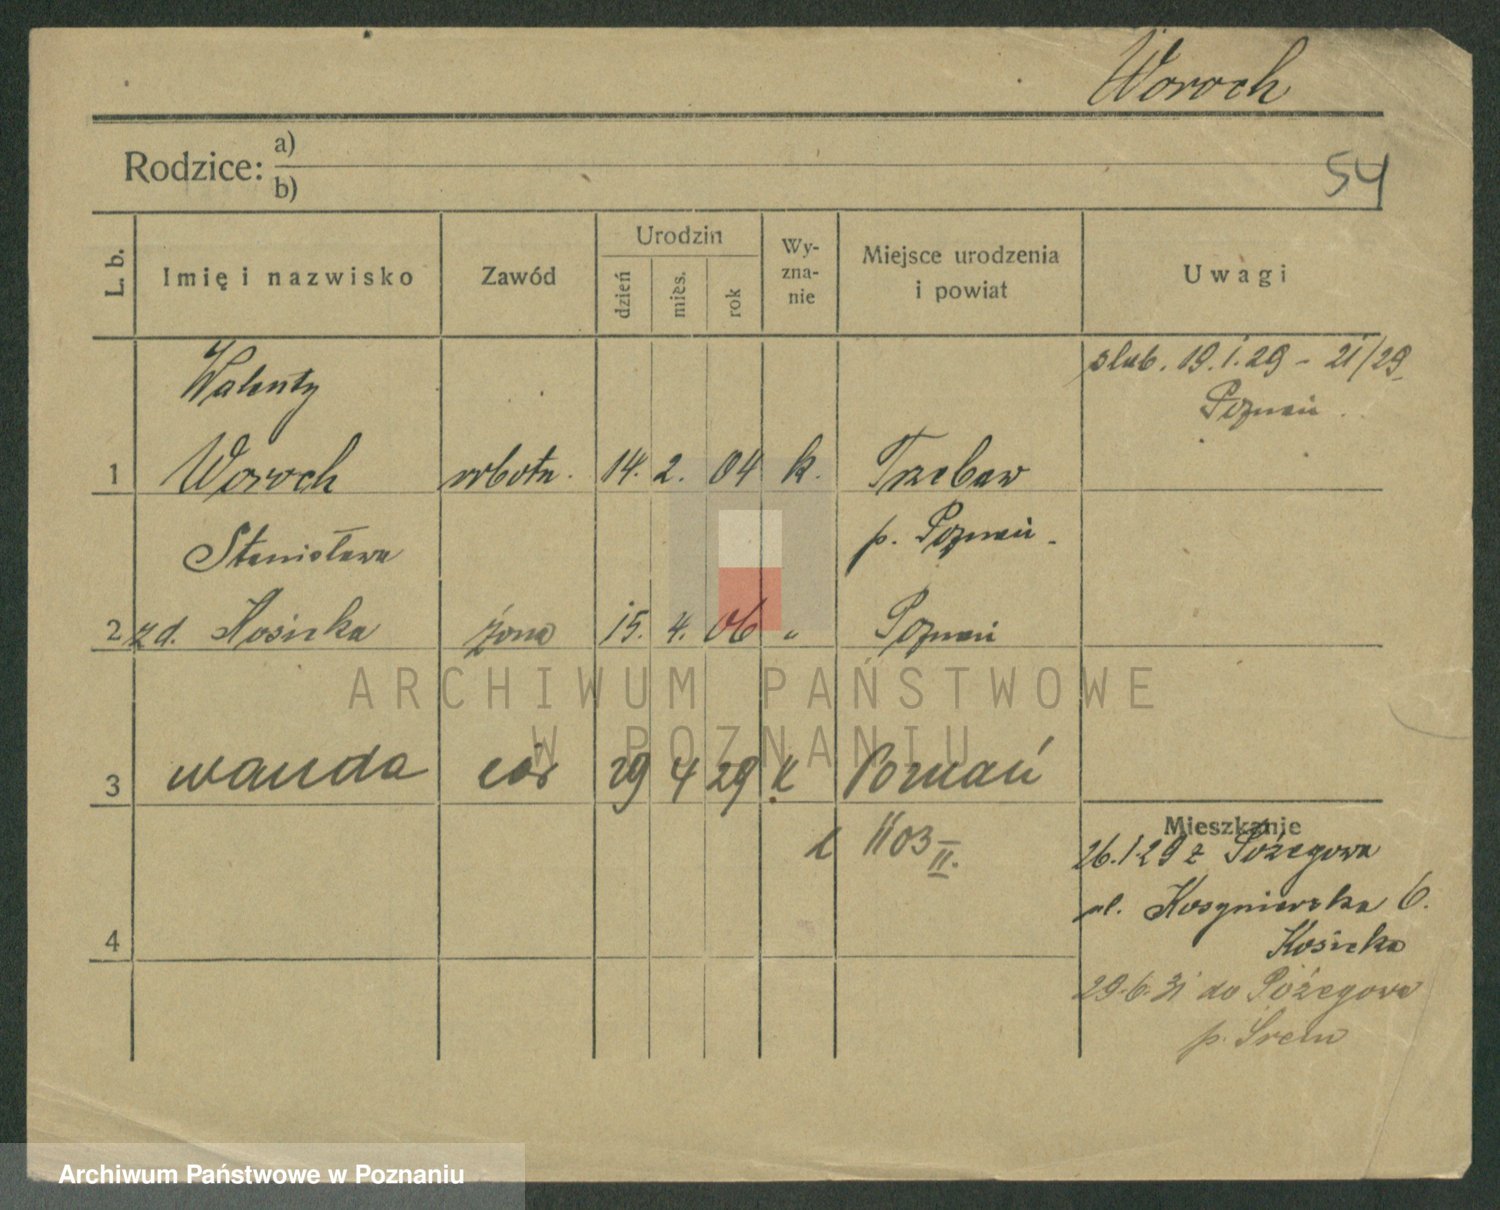 Woroch
Rodzice: a)
b)
54
L. b.
Imię i nazwisko
Zawód
Urodzin
dzień
mies.
rok
Wy-
zna-
nie
Miejsce urodzenia
i powiat
Uwagi
Walenty
ślub. 19.1.29 - 21/29
Poznań.
1 Woroch robotn. 14. 2. 04 k. Trzebaw
Stanisława
p. Poznań.
2 z d. Kosicka żona 15. 4. 06 " Poznań
ARCHIWUM PAŃSTWOWE
W POZNANIU
3 wanda cór 29 4 29 K Poznań
1103 II.
Mieszkanie
26.1.29 z Pożegowa
ul. 6.
Kosicka
4
29.6.31 do Pożegowo
p. Śrem
Archiwum Państwowe w Poznaniu